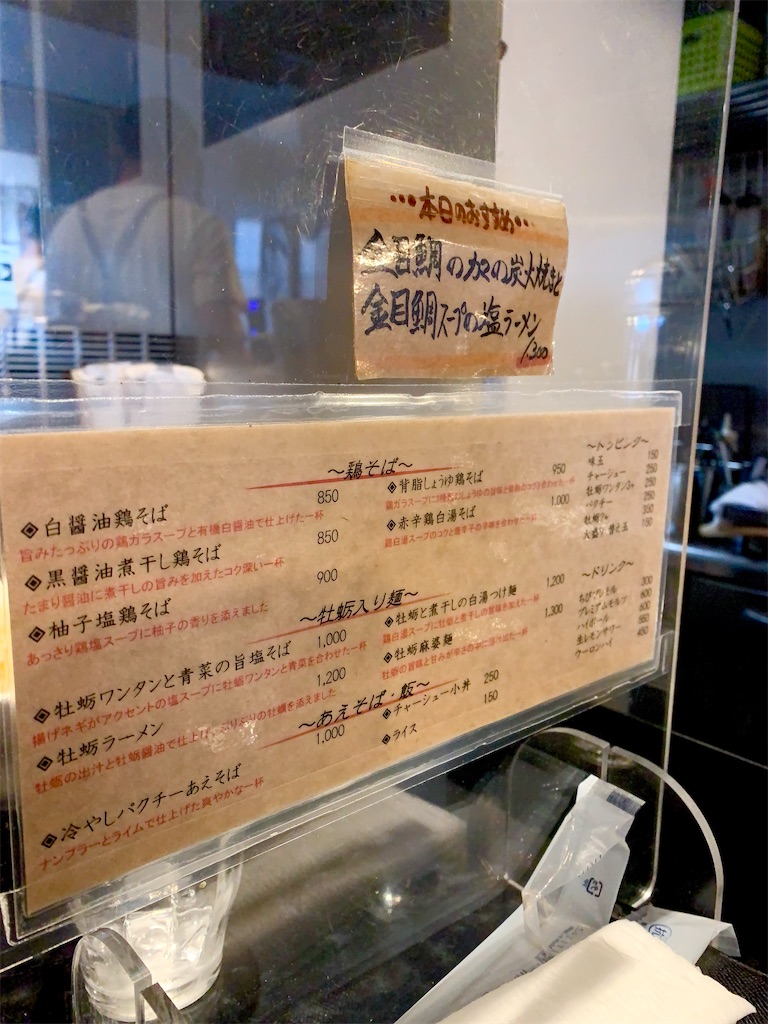 •••本日のおすすめ•••
金目鯛のカマの炭火焼きと
金目鯛スープの塩ラーメン
1,300
〜鶏そば〜
◈白醤油鶏そば 850
旨みたっぷりの鶏ガラスープと有機白醤油で仕上げた一杯
◈黒醤油煮干し鶏そば 850
たまり醤油に煮干しの旨みを加えたコク深い一杯
◈柚子塩鶏そば 900
あっさり鶏塩スープに柚子の香りを添えました
◈背脂しょうゆ鶏そば 950
鶏ガラスープに
◈赤辛鶏白湯そば 1,000
鶏白湯スープのコクと唐辛子の辛味を合わせた一杯
〜牡蛎入り麺〜
◈牡蛎ワンタンと青菜の旨塩そば 1,000
揚げネギがアクセントの塩スープに牡蛎ワンタンと青菜を合わせた一杯
◈牡蛎ラーメン 1,200
牡蛎の出汁と牡蛎醤油で仕上げ、ぷりぷりの牡蠣を添えました
◈牡蛎と煮干しの白湯つけ麺 1,200
鶏白湯スープに牡蛎と煮干しの旨味を加えた一杯
◈牡蛎麻婆麺 1,300
牡蛎の旨味と甘みが辛さの中に
〜あえそば・飯〜
◈冷やしパクチーあえそば 1,000
ナンプラーとライムで仕上げた爽やかな一杯
◈チャーシュー小丼 250
◈ライス 150
〜トッピング〜
味玉 150
チャーシュー 250
牡蛎ワンタン 250
パクチー 250
牡蛎 350
大盛り・替え玉 150
〜ドリンク〜
ちびプレモル 300
プレミアムモルツ 600
ハイボール 500
生レモンサワー 600
ウーロンハイ 450